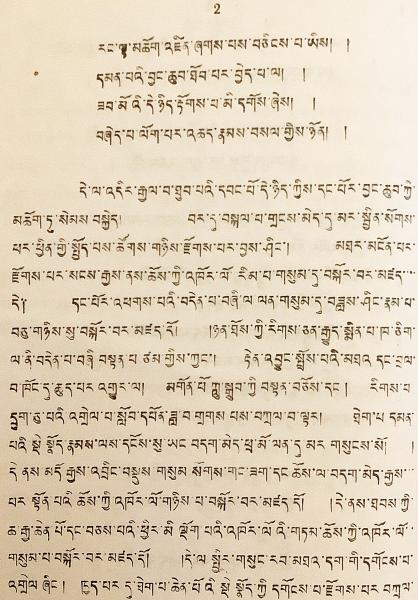 2
རང་ལྟ་མཆོག་འཛིན་ཞགས་པས་བཅིངས་པ་ཡིས། །
དམན་པའི་བྱང་ཆུབ་ཐོབ་པར་བྱེད་པ་ལ། །
ཟབ་མོའི་དེ་ཉིད་རྟོགས་པ་མི་དགོས་ཞེས། །
བཞེད་པ་ལོག་པར་འཆད་རྣམས་བསལ་གྱིས་ཉོན། །
དེ་ལ་འདིར་རྒྱལ་བ་ཐུབ་པའི་དབང་པོ་དེ་ཉིད་ཀྱིས་དང་པོར་བྱང་ཆུབ་ཀྱི་
མཆོག་ཏུ་སེམས་བསྐྱེད། བར་དུ་བསྐལ་པ་གྲངས་མེད་དུ་མར་སྦྱིན་སོགས་
ཕར་ཕྱིན་གྱི་སྤྱོད་པས་ཚོགས་གཉིས་རྫོགས་པར་བྱས་ཤིང་། མཐར་མངོན་པར་
རྫོགས་པར་སངས་རྒྱས་ནས་ཆོས་ཀྱི་འཁོར་ལོ་རིམ་པ་གསུམ་དུ་བསྐོར་བར་མཛད་
དེ། དང་པོར་འཕགས་པའི་བདེན་པ་བཞི་ལ་ལན་གསུམ་དུ་བཟླས་ཤིང་རྣམ་པ་
བཅུ་གཉིས་སུ་བསྐོར་བར་མཛད་དོ། །ཉན་ཐོས་ཀྱི་རིགས་ཅན་རྒྱུད་སྨིན་པ་ཁ་ཅིག་
ལ་ནི་བདེན་པ་བཞི་བསྟན་པ་ཙམ་གྱིས་ཀྱང་། རྟེན་འབྱུང་སྤྲོས་པའི་མཐའ་དང་བྲལ་
བ་ཁོང་དུ་ཆུད་པར་འགྱུར་ལ། མགོན་པོ་ཀླུ་སྒྲུབ་ཀྱི་བསྟན་བཅོས་དང་། རིགས་པ་
དྲུག་ཅུ་པའི་འགྲེལ་པ་སློབ་དཔོན་ཟླ་བ་གྲགས་པས་བཀྲལ་བ་ལྟར། ཐེག་པ་དམན་
པའི་སྡེ་སྣོད་རྣམས་ལས་དངོས་སུ་ཡང་བདག་མེད་ཕྲ་མོ་ལན་དུ་མར་གསུངས་སོ། །
དེ་ནས་མདོ་རྒྱས་འབྲིང་བསྡུས་གསུམ་སོགས་གང་ཟག་དང་ཆོས་ལ་བདག་མེད་རྒྱས་
པར་སྟོན་པའི་ཆོས་ཀྱི་འཁོར་ལོ་གཉིས་པ་བསྐོར་བར་མཛད་དོ། །དེ་ནས་ཐབས་ཀྱི་
ཆ་རྒྱ་ཆེན་པོ་དང་བཅས་པའི་ཕྱིར་མི་ལྡོག་པའི་འཁོར་ལོའི་གཏམ་ཆོས་ཀྱི་འཁོར་ལོ་
གསུམ་པ་བསྐོར་བར་མཛད་དོ། །དེ་ལ་སྤྱིར་གསུང་རབ་མཐའ་དག་གི་དགོངས་པ་
འགྲེལ་ཞིང་། ཁྱད་པར་དུ་ཐེག་པ་ཆེན་པོའི་སྡེ་སྣོད་ཀྱི་དགོངས་པ་རྫོགས་པར་བཀྲལ་